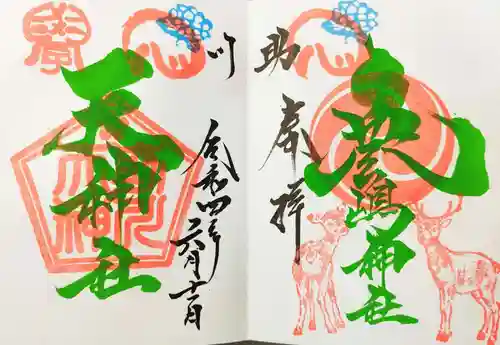 鹿嶋神社
助
奉拝
川
令和四年
六月十一日
天神社